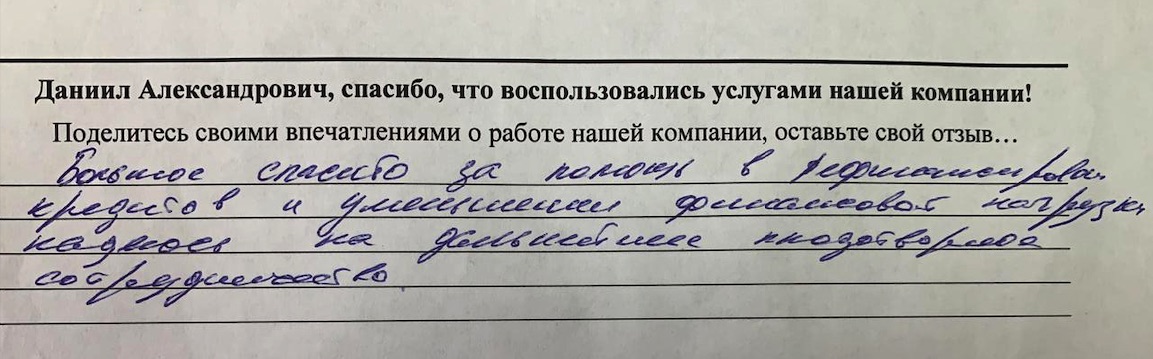 Даниил Александрович, спасибо, что воспользовались услугами нашей компании!
Поделитесь своими впечатлениями о работе нашей компании, оставьте свой отзыв…
Большое спасибо за помощь в рефинансирован.
кредитов и уменьшении финансовой нагрузки
надеюсь на дальнейшее плодотворное
сотрудничество.